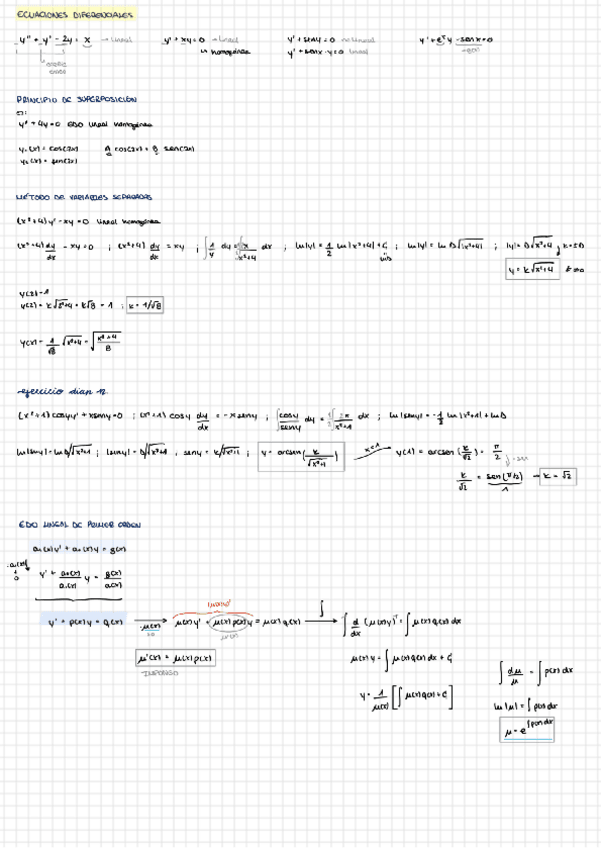 ECUACIONES DIFERENCIALES
y'' + y' - 2y = x → lineal
y' + xy = 0 → lineal
↳ homogénea
y' + seny = 0 no lineal
y' + senx · y = 0 lineal
PRINCIPIO DE SUPERPOSICIÓN
y'' + 4y = 0 EDO lineal homogénea
y₁(x) = cos(2x)
A cos(2x) + B sen(2x)
y₂(x) = sen(2x)
MÉTODO DE VARIABLES SEPARADAS
(x²+4)y' - xy = 0 lineal homogénea
(x²+4) dy/dx - xy = 0 ; (x²+4) dy/dx = xy ; ∫ 1/y dy = ∫ x/x²+4 dx ; ln|y| = 1/2 ln|x²+4| + C ; ln|y| = ln D√x²+4 ; |y| = D√x²+4 , k = ±D
lnD
y = k√x²+4
y(2) = 1
y(2) = k√2²+4 = k√8 = 1 ; k = 1/√8
y(x) = 1/√8 √x²+4 = √x²+4/8
ejercicio diap 12.
(x²+1) cosy y' + xseny = 0 ; (x²+1) cosy dy/dx = -x seny ; ∫ cosy/seny dy = ∫ -x/x²+1 dx ; ln|seny| = -1/2 ln|x²+1| + lnD
ln|seny| = ln D/√x²+1 ; |seny| = D/√x²+1 ; seny = k/√x²+1 ; y = arcsen(k/√x²+1)
x=1
y(1) = arcsen(k/√2) = π/2
k/√2 = sen(π/2) → k = √2
1
EDO LINEAL DE PRIMER ORDEN
a₁(x)y' + a₀(x)y = g(x)
y' + a₀(x)/a₁(x) y = g(x)/a₁(x)
y' + p(x)y = q(x)
·μ(x)
μ(x)y' + μ(x)p(x)y = μ(x)q(x)
∫ d/dx (μ(x)y) = ∫ μ(x)q(x)dx
μ'(x)
μ'(x) = μ(x)p(x)
IMPONGO
μ(x)y = ∫ μ(x)q(x)dx + C
y = 1/μ(x) [∫ μ(x)q(x) + C]
∫ dμ/μ = ∫ p(x)dx
ln|μ| = ∫ p(x)dx
μ = e^∫p(x)dx